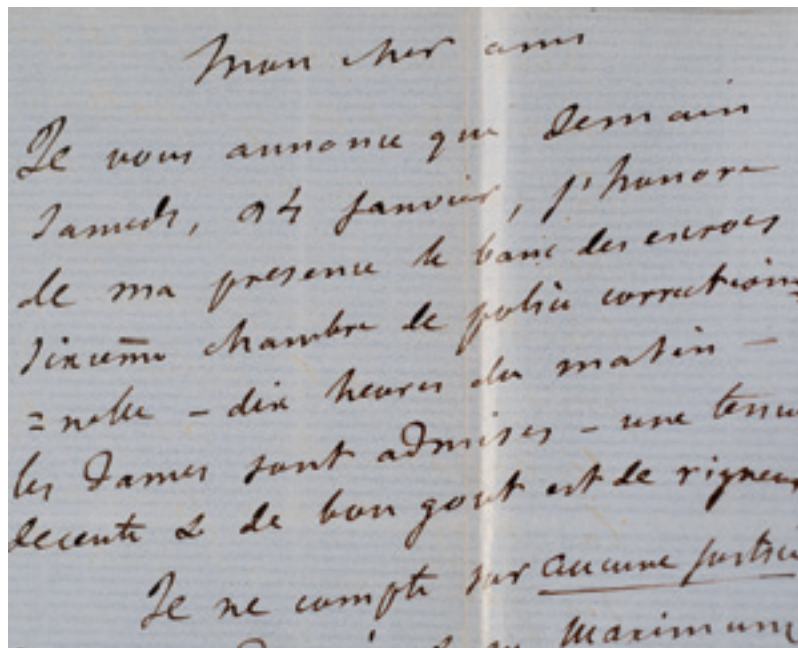 Mon cher ami
Je vous annonce que demain
Samedi, 24 Janvier, j'honore
de ma presence le banc des escrocs
sixieme chambre de police correction=
=nelle – dix heures du matin –
les Dames sont admises – une tenue
decente & de bon gout est de rigueur
Je ne compte sur aucune justice
Maximum